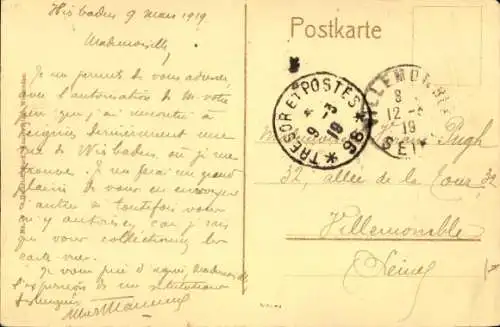 Wiesbaden 9 mars 1919
Mademoiselle
Je me permets de vous adresser
avec l'autorisation de M votre
père que j'ai rencontré à
dernièrement une
vue de Wiesbaden, où je me
trouve. Je me ferai un grand
plaisir de vous en envoyer
d'autres si toutefois vous
m'y autorisez car je sais
que vous collectionnez les
cartes vues.
Je vous prie d'agréer Mademoiselle
l'expression de mes salutations
distinguées
Postkarte
TRESOR ET POSTES
9 -3
19
* 98 *
VILLEMOMBLE
8
12 -3
19
SEINE
Mademoiselle Pugh
32, allée de la Tour 32
Villemomble
(Seine)